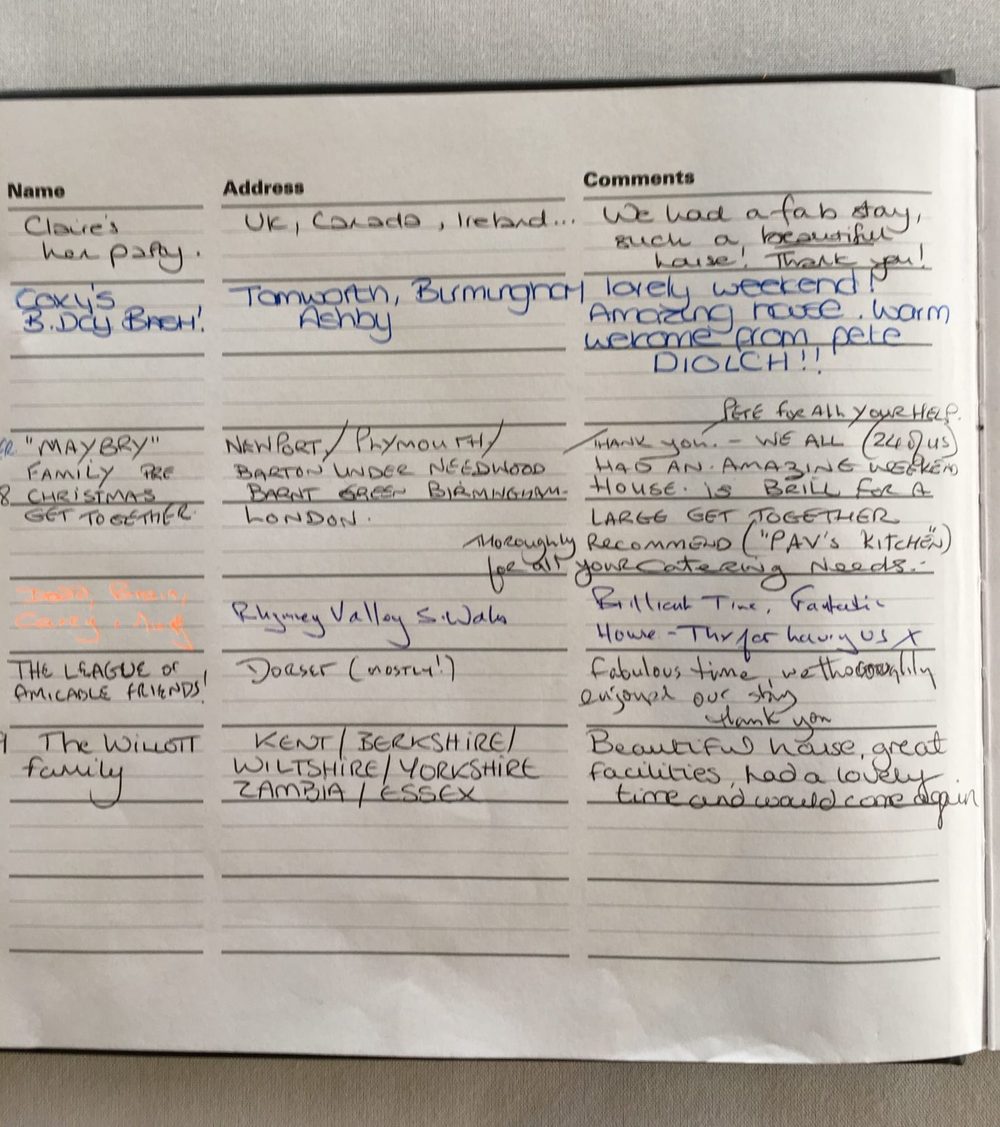 Name Address Comments
Claire's
hen party.
UK, Canada, Ireland...
We had a fab stay,
such a beautiful
house! Thank you!
Coxy's
B.Day BASH!
Tamworth, Birmingham
Ashby
lovely weekend!
Amazing house. Warm
welcome from pete
DIOLCH!!
ER "MAYBRY"
FAMILY PRE
8 CHRISTMAS
GET TOGETHER.
NEWPORT/PLYMOUTH/
BARTON UNDER NEEDWOOD
BARNT GREEN BIRMINGHAM.
LONDON.
PETE for ALL YOUR HELP.
THANK you. - WE ALL (24 of us)
HAD AN AMAZING WEEKEND
HOUSE IS BRILL FOR A
LARGE GET TOGETHER
Thoroughly RECOMMEND ("PAV's KITCHEN")
for all your catering Needs.-
Rhymney Valley S. Wales
Brilliant Time, Fantastic
House - Thx for having us X
THE LEAGUE OF
AMICABLE FRIENDS!
DORSET (mostly!)
Fabulous time, we thoroughly
enjoyed our stay
thank you
9 The WILLOTT
family
KENT/BERKSHIRE/
WILTSHIRE/YORKSHIRE
ZAMBIA/ESSEX
Beautiful house, great
facilities, had a lovely
time and would come again